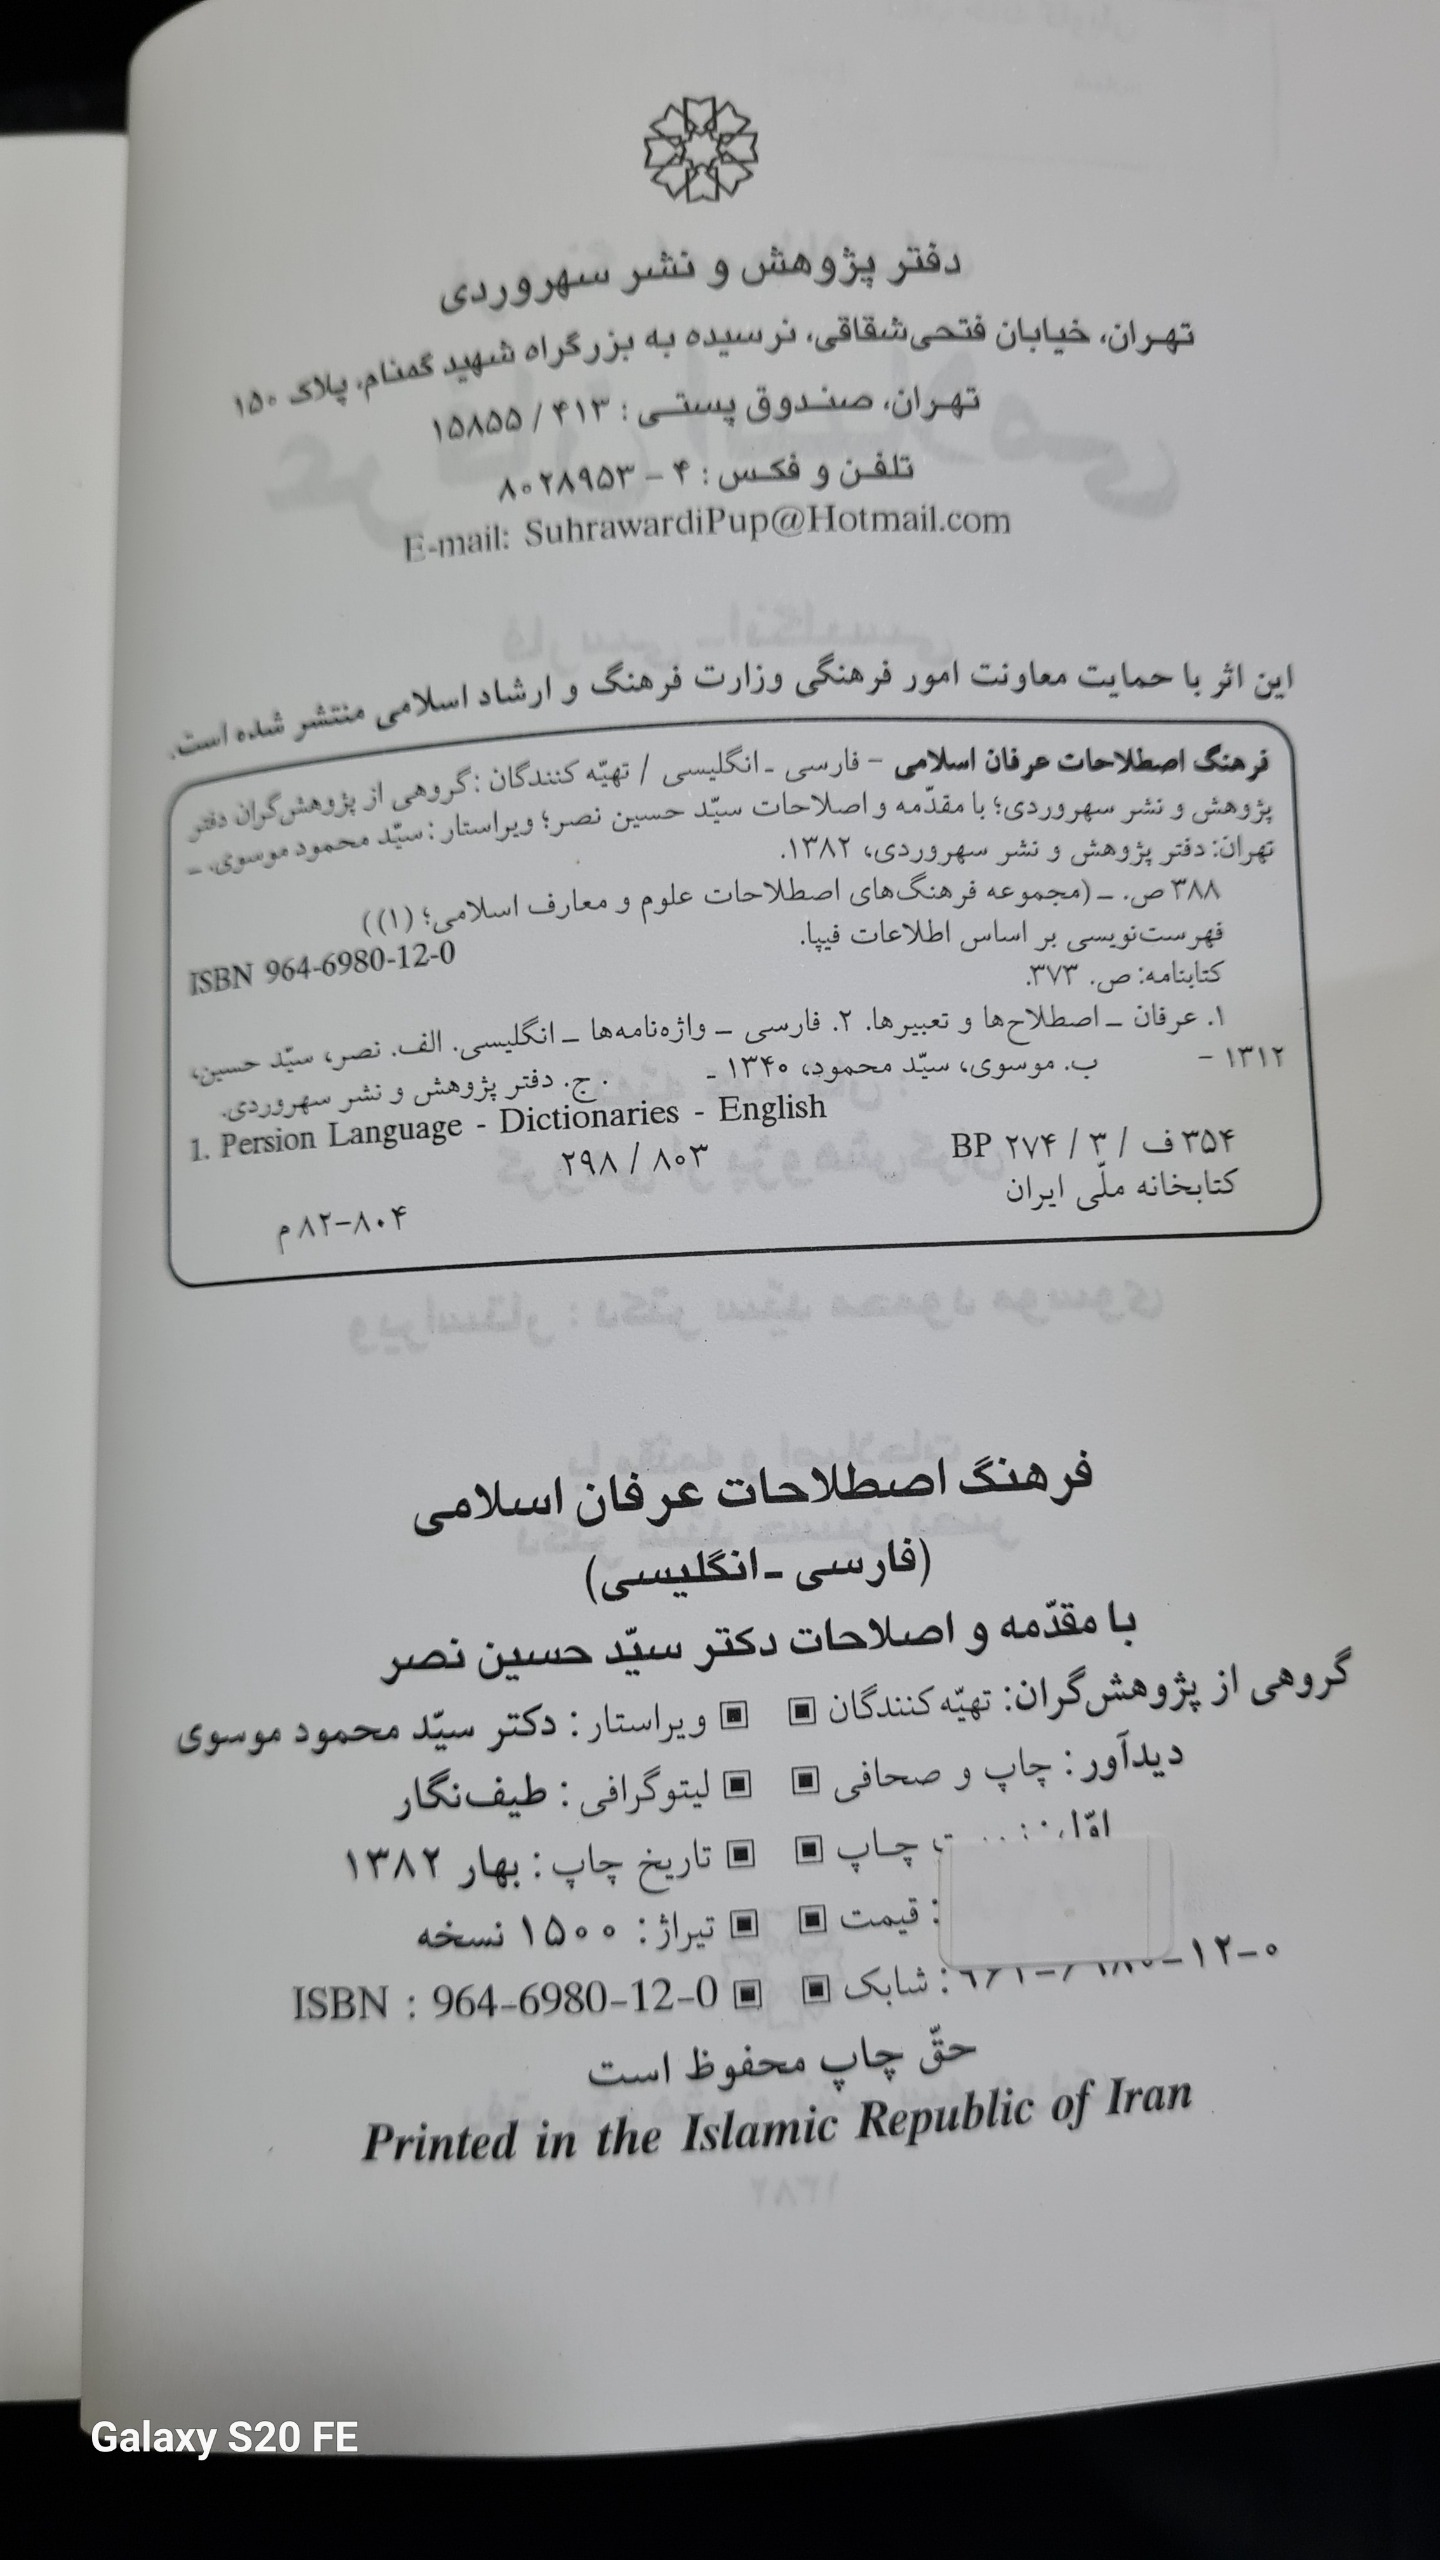 دفتر پژوهش و نشر سهروردی
تهران، خیابان فتحی‌شقاقی، نرسیده به بزرگراه شهید گمنام، پلاک ۱۵۰
تهران، صندوق پستی : ۴۱۳ / ۱۵۸۵۵
تلفن و فکس : ۴ – ۸۰۲۸۹۵۳
E-mail: SuhrawardiPup@Hotmail.com
این اثر با حمایت معاونت امور فرهنگی وزارت فرهنگ و ارشاد اسلامی منتشر شده است.
فرهنگ اصطلاحات عرفان اسلامی – فارسی ـ انگلیسی / تهیّه کنندگان : گروهی از پژوهش‌گران دفتر
پژوهش و نشر سهروردی؛ با مقدّمه و اصلاحات سیّد حسین نصر؛ ویراستار : سیّد محمود موسوی. ـ
تهران: دفتر پژوهش و نشر سهروردی، ۱۳۸۲.
۳۸۸ ص. ـ (مجموعه فرهنگ‌های اصطلاحات علوم و معارف اسلامی؛ (۱))
فهرست‌نویسی بر اساس اطلاعات فیپا.
ISBN 964-6980-12-0
کتابنامه: ص. ۳۷۳.
۱. عرفان ـ اصطلاح‌ها و تعبیرها. ۲. فارسی ـ واژه‌نامه‌ها ـ انگلیسی. الف. نصر، سیّد حسین،
۱۳۱۲ – ب. موسوی، سیّد محمود، ۱۳۴۰ ـ . ج. دفتر پژوهش و نشر سهروردی.
1. Persion Language - Dictionaries - English
BP ۲۷۴ / ۳ / ف ۳۵۴
۲۹۸ / ۸۰۳
کتابخانه ملّی ایران
۸۲–۸۰۴ م
فرهنگ اصطلاحات عرفان اسلامی
(فارسی ـ انگلیسی)
با مقدّمه و اصلاحات دکتر سیّد حسین نصر
گروهی از پژوهش‌گران: تهیّه کنندگان ▣ ▣ ویراستار : دکتر سیّد محمود موسوی
دیدآور : چاپ و صحافی ▣ ▣ لیتوگرافی : طیف‌نگار
اوّل : چاپ ▣ ▣ تاریخ چاپ : بهار ۱۳۸۲
: قیمت ▣ ▣ تیراژ : ۱۵۰۰ نسخه
۱۲-۰ : شابک ▣ ▣ ISBN : 964-6980-12-0
حقّ چاپ محفوظ است
Printed in the Islamic Republic of Iran
Galaxy S20 FE